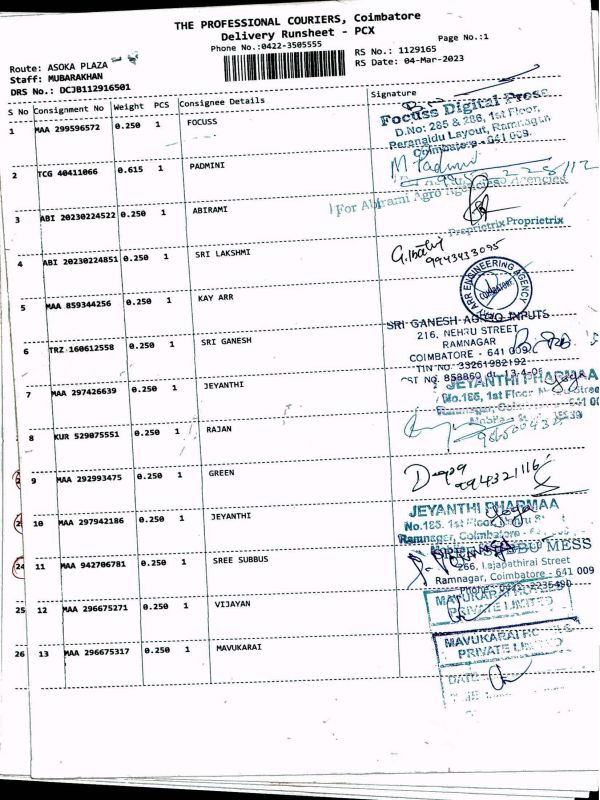 THE PROFESSIONAL COURIERS, Coimbatore
Delivery Runsheet - PCX
Phone No.:0422-3505555
Page No.:1
Route: ASOKA PLAZA
RS No.: 1129165
Staff: MUBARAKHAN
RS Date: 04-Mar-2023
DRS No.: DCJB112916501
S No Consignment No Weight PCS Consignee Details Signature
1 MAA 299596572 0.250 1 FOCUSS
Focuss Digital Press
D.No: 285 & 286, 1st Floor,
Perangidu Layout, Ramnagar
Coimbatore - 641 009.
2 TCG 40411066 0.615 1 PADMINI
M Padmini
3 ABI 20230224522 0.250 1 ABIRAMI
For Abirami Agro Agencies
Proprietrix
4 ABI 20230224851 0.250 1 SRI LAKSHMI
9943433095
5 MAA 859344256 0.250 1 KAY ARR
ARR ENGINEERING AGENCY
COIMBATORE
6 TRZ 160612558 0.250 1 SRI GANESH
SRI GANESH AGRO INPUTS
216, NEHRU STREET
RAMNAGAR
COIMBATORE - 641 009.
TIN NO 33261982192
7 MAA 297426639 0.250 1 JEYANTHI
JEYANTHI PHARMAA
No.186, 1st Floor
8 KUR 529075551 0.250 1 RAJAN
9 MAA 292993475 0.250 1 GREEN
10 MAA 297942186 0.250 1 JEYANTHI
JEYANTHI PHARMAA
Ramnagar, Coimbatore
24 11 MAA 942706781 0.250 1 SREE SUBBUS
MESS
266, Lajapathirai Street
Ramnagar, Coimbatore - 641 009
25 12 MAA 296675271 0.250 1 VIJAYAN
PRIVATE LIMITED
26 13 MAA 296675317 0.250 1 MAVUKARAI
MAVUKARAI
PRIVATE LIMITED
DATE